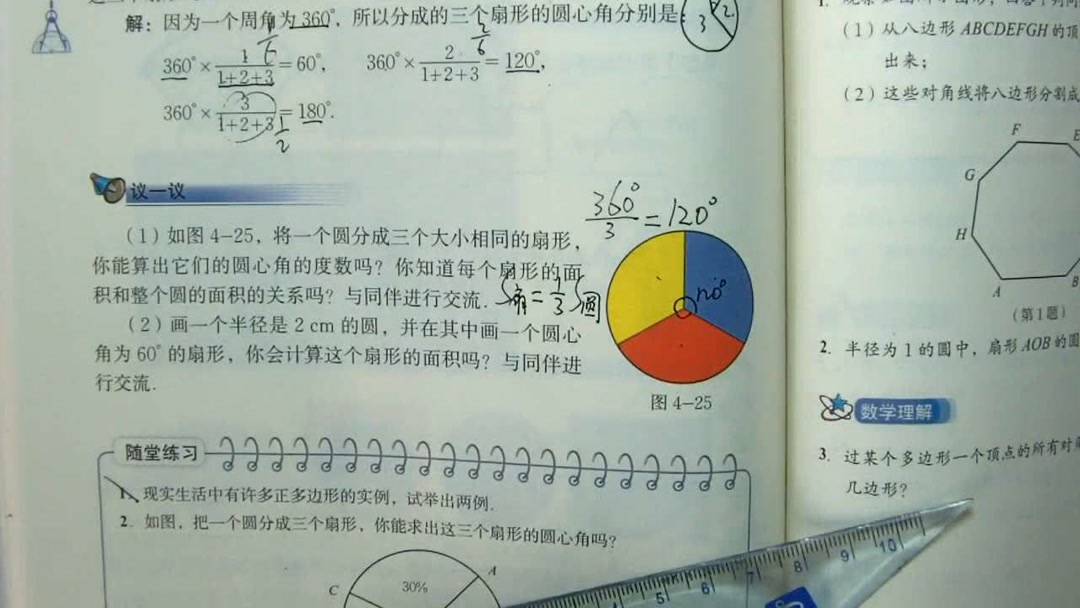 解：因为一个周角为360°，所以分成的三个扇形的圆心角分别是：
360°×1/(1+2+3)=60°， 360°×2/(1+2+3)=120°，
360°×3/(1+2+3)=180°.
1/6
2/6
1/2
3 2
议一议
(1) 如图4-25，将一个圆分成三个大小相同的扇形，
你能算出它们的圆心角的度数吗？你知道每个扇形的面
积和整个圆的面积的关系吗？与同伴进行交流.
(2) 画一个半径是2 cm的圆，并在其中画一个圆心
角为60°的扇形，你会计算这个扇形的面积吗？与同伴进
行交流.
360°/3=120°
S扇=1/3 S圆
120°
图4-25
随堂练习
1. 现实生活中有许多正多边形的实例，试举出两例.
2. 如图，把一个圆分成三个扇形，你能求出这三个扇形的圆心角吗？
C
30%
A
(1) 从八边形ABCDEFGH的顶
出来；
(2) 这些对角线将八边形分割成
F
E
G
H
A
B
(第1题)
2. 半径为1的圆中，扇形AOB的圆
数学理解
3. 过某个多边形一个顶点的所有对角
几边形？
5 6 7 8 9 10